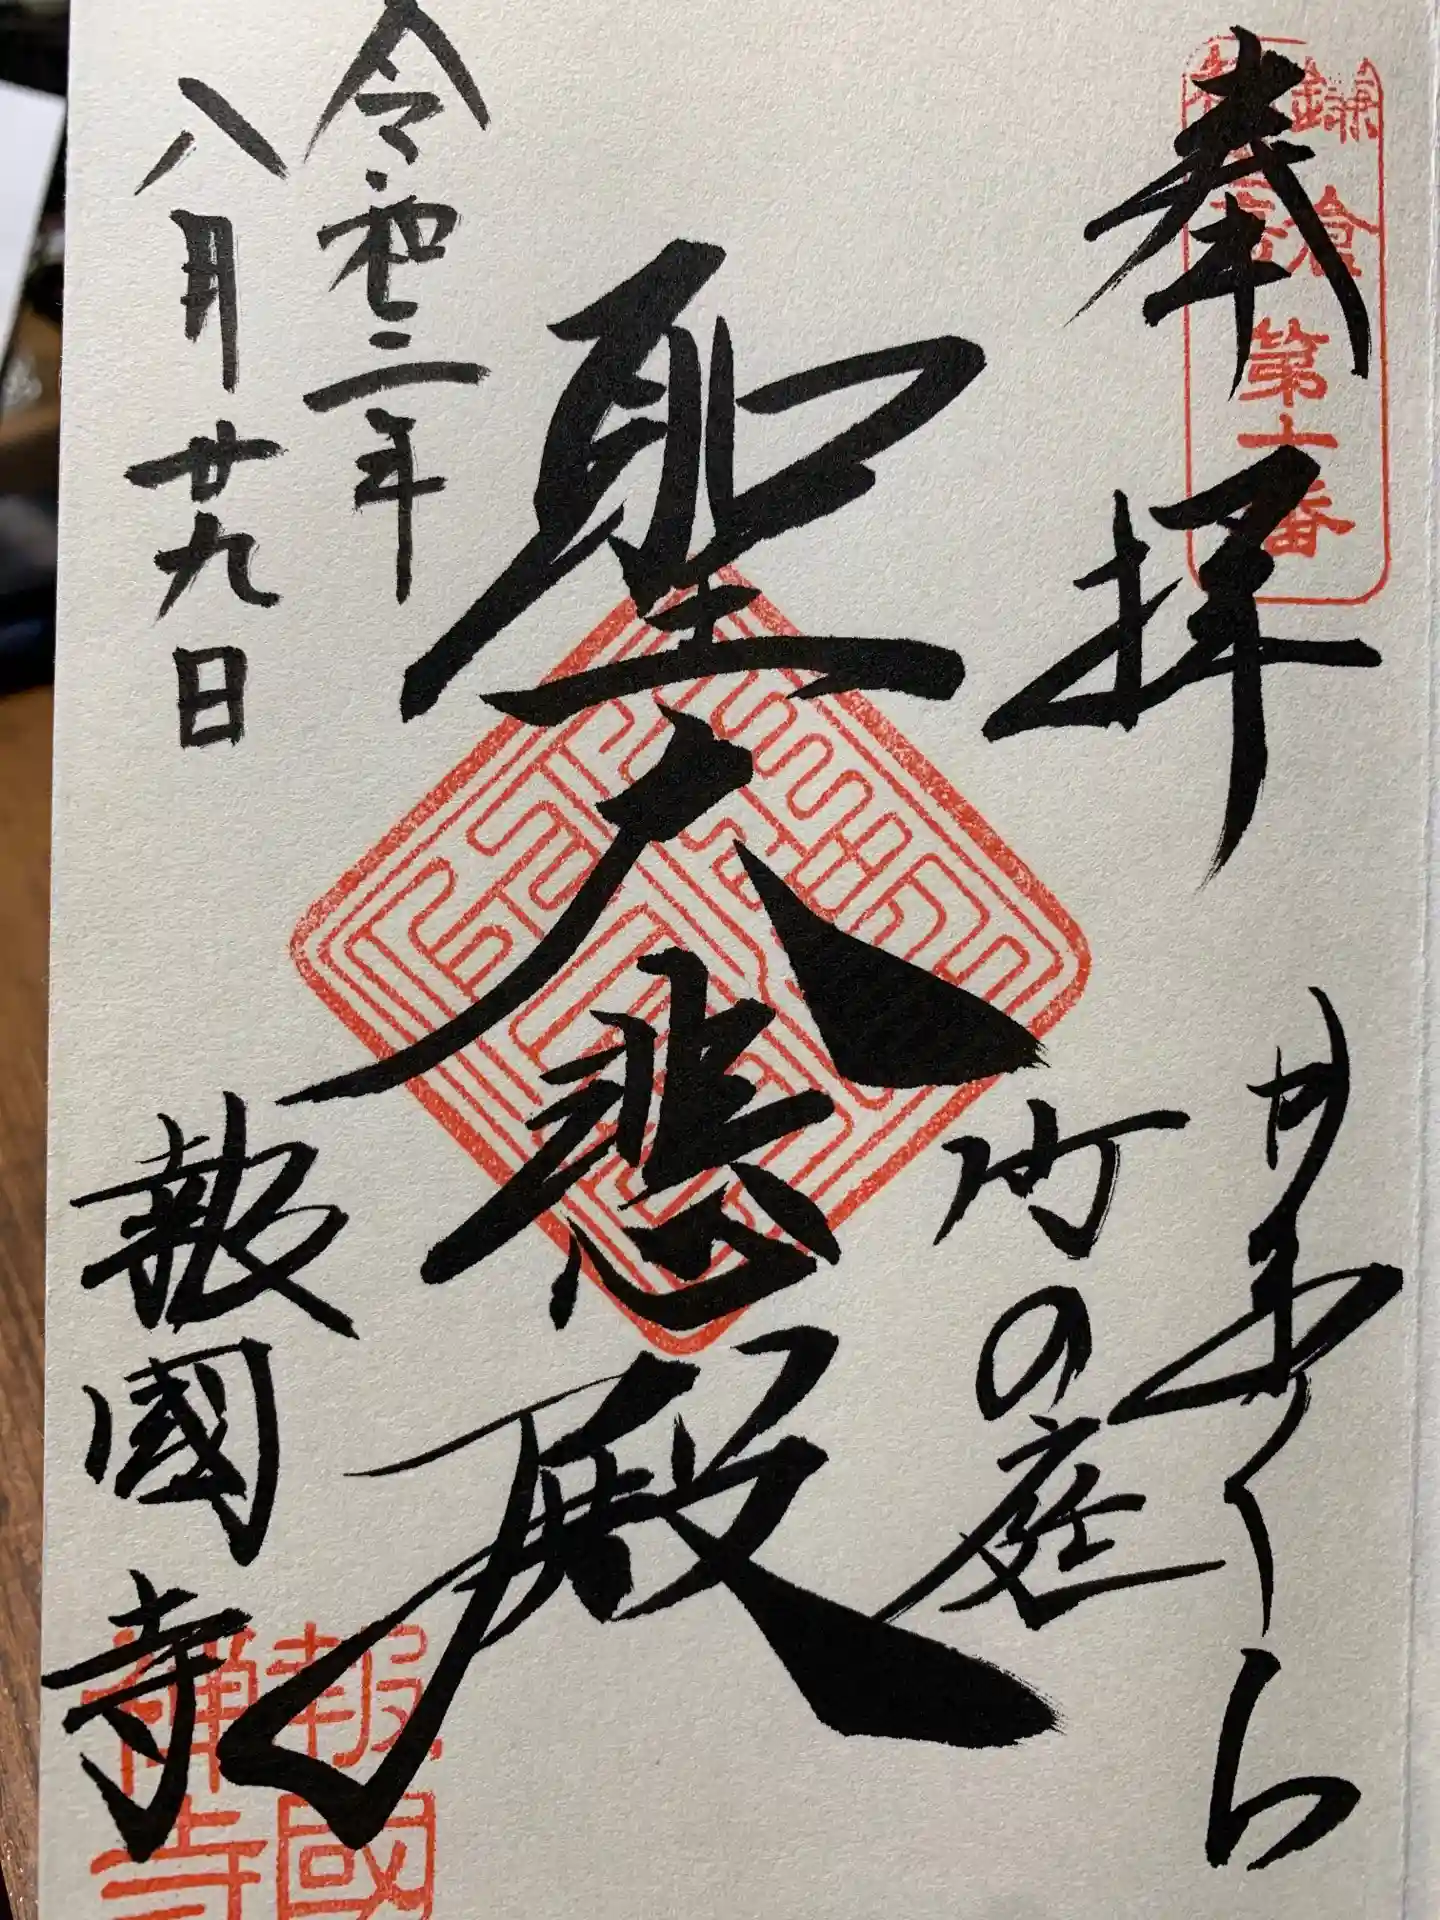 鎌倉
第十番
奉拝
かまくら
竹の庭
聖大悲殿
令和二年
八月廿九日
報國寺
報國
禅寺